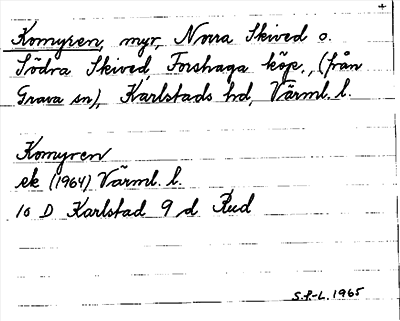 Komyren, myr, Norra Skived o.
Södra Skived, Forshaga köp., (från
Grava sn), Karlstads hd, Värml. l.
Komyren
ek (1964) Värml. l.
10 D Karlstad 9 d Rud
S.P-L. 1965